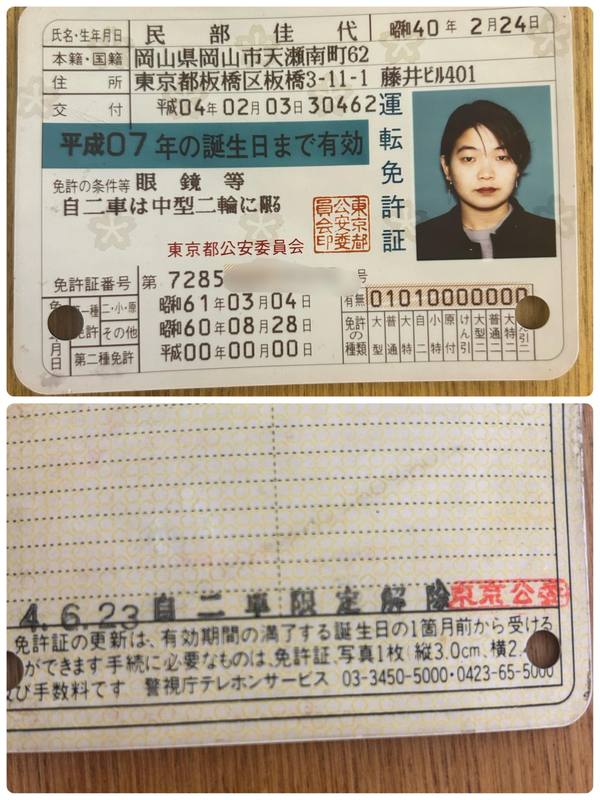 氏名・生年月日 民部佳代 昭和40年2月24日
本籍・国籍 岡山県岡山市天瀬南町62
住所 東京都板橋区板橋3-11-1 藤井ビル401
交付 平成04年02月03日 30462
平成07年の誕生日まで有効
免許の条件等 眼鏡等
自二車は中型二輪に限る
運転免許証
東京都公安委員会
東京都公安委員会印
免許証番号 第 7285 号
二・小・原 昭和61年03月04日
その他 昭和60年08月28日
第二種免許 平成00年00月00日
有無 01010000000
免許の種類 大型 普通 大特 自二 小特 原付 けん引 大型二 普通二 大特二
4.6.23 自二車限定解除 東京公委
免許証の更新は、有効期間の満了する誕生日の1箇月前から受ける
ができます手続に必要なものは、免許証、写真1枚(縦3.0cm、横2.4
び手数料です 警視庁テレホンサービス 03-3450-5000・0423-65-5000